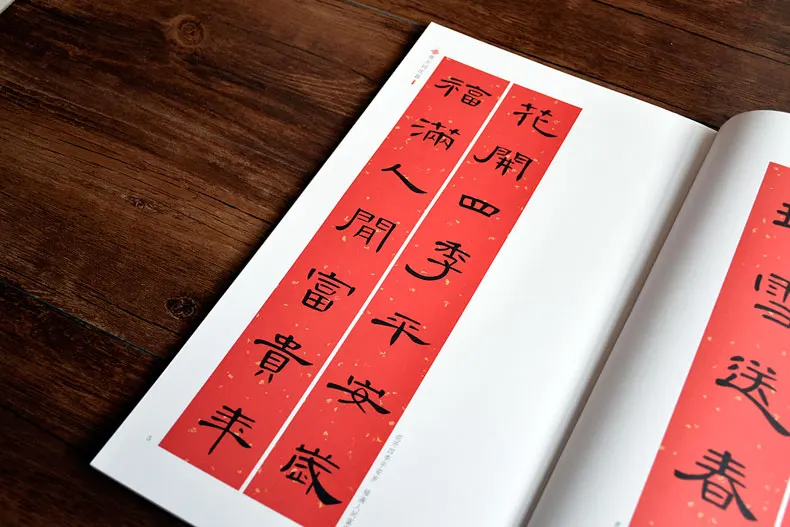 花開四季平安歲
福滿人間富貴年
雪送春
5